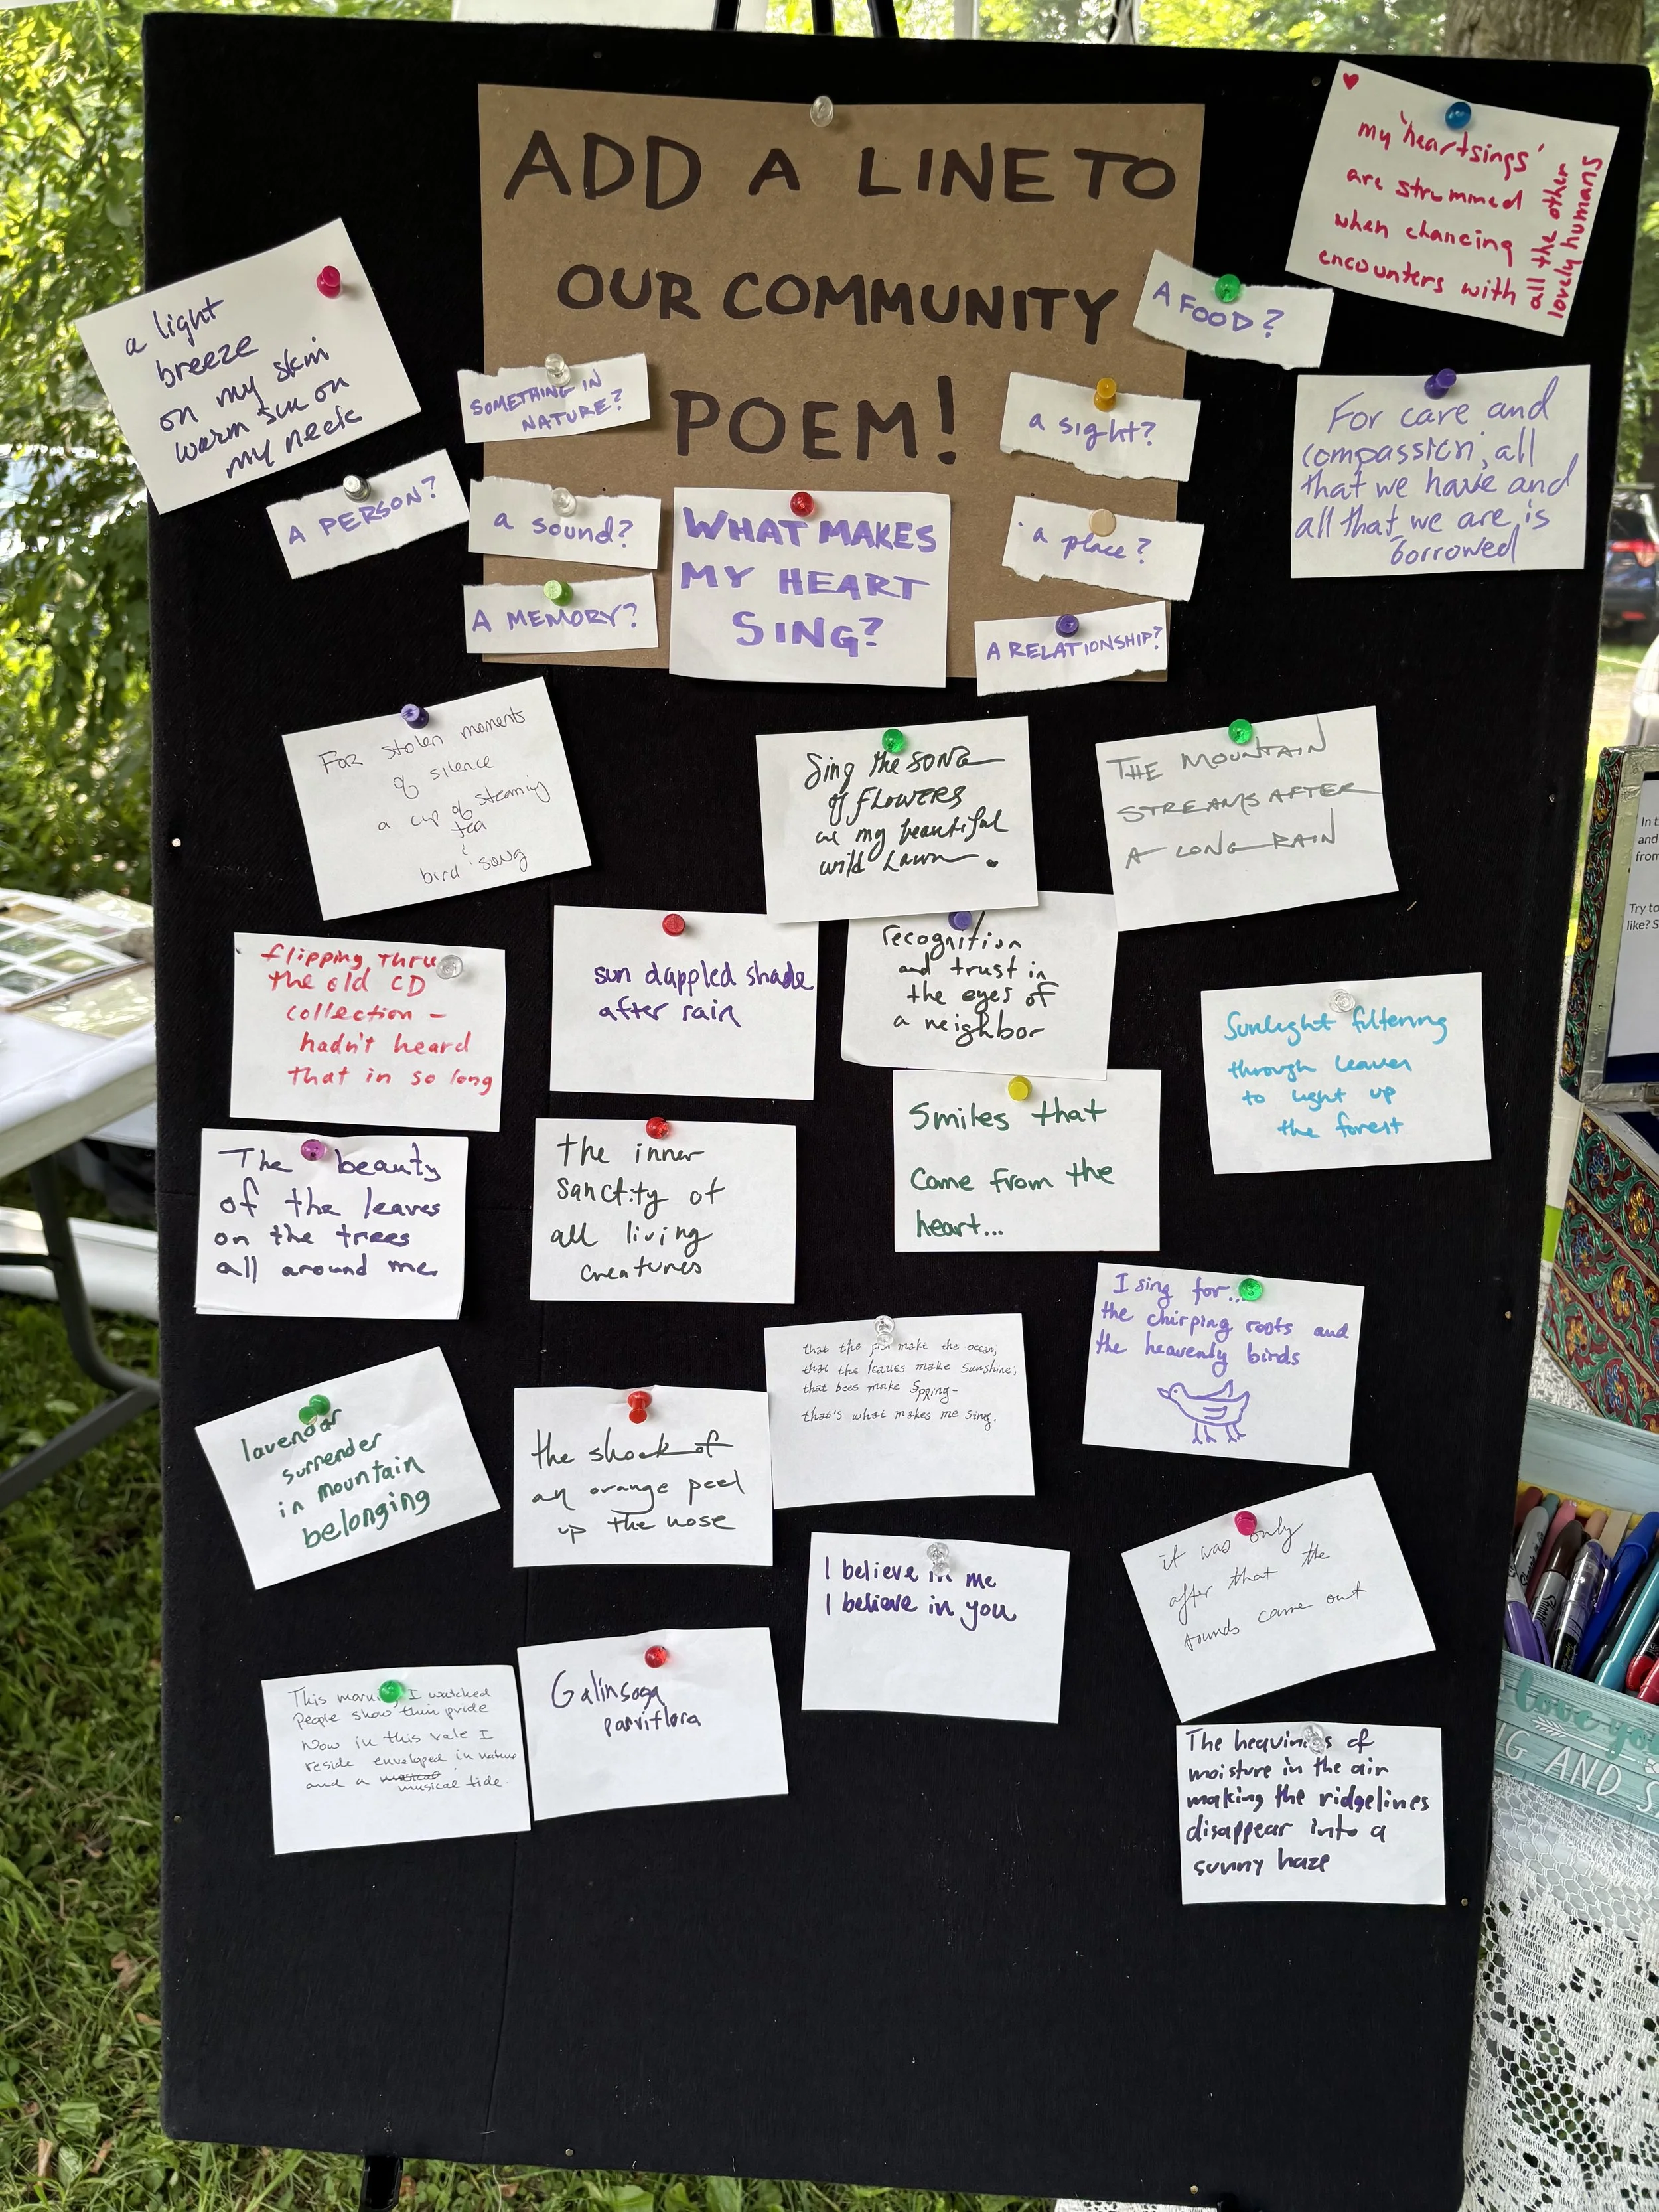 ADD A LINE TO
OUR COMMUNITY
POEM!
SOMETHING IN
NATURE?
A PERSON?
a sound?
A MEMORY?
WHAT MAKES
MY HEART
SING?
A FOOD?
a sight?
a place?
A RELATIONSHIP?
a light
breeze
on my skin
warm sun on
my neck
my 'heartsings'
are strummed
when chancing
encounters with
all the other
lovely humans
For care and
compassion, all
that we have and
all that we are, is
borrowed
For stolen moments
of silence
a cup of steaming
tea
&
bird song
Sing the SONG
of FLOWERS
in my beautiful
wild Lawn.
THE MOUNTAIN
STREAMS AFTER
A LONG RAIN
flipping thru
the old CD
collection -
hadn't heard
that in so long
sun dappled shade
after rain
recognition
and trust in
the eyes of
a neighbor
Sunlight filtering
through leaves
to light up
the forest
The beauty
of the leaves
on the trees
all around me
the inner
sanctity of
all living
creatures
Smiles that
Come from the
heart...
I sing for...
the chirping roots and
the heavenly birds
lavendar
surrender
in mountain
belonging
the shock of
an orange peel
up the nose
that the make the ocean,
that the leaves make sunshine,
that bees make Spring-
that's what makes me sing.
I believe in me
I believe in you
it was only
after that the
sounds came out
This morning I watched
People show their pride
Now in this vale I
reside enveloped in nature
and a musical
musical tide.
Galinsoga
parviflora
The heaviness of
moisture in the air
making the ridgelines
disappear into a
sunny haze
In t
and
from
Try to
like? S
love you
NG AND S